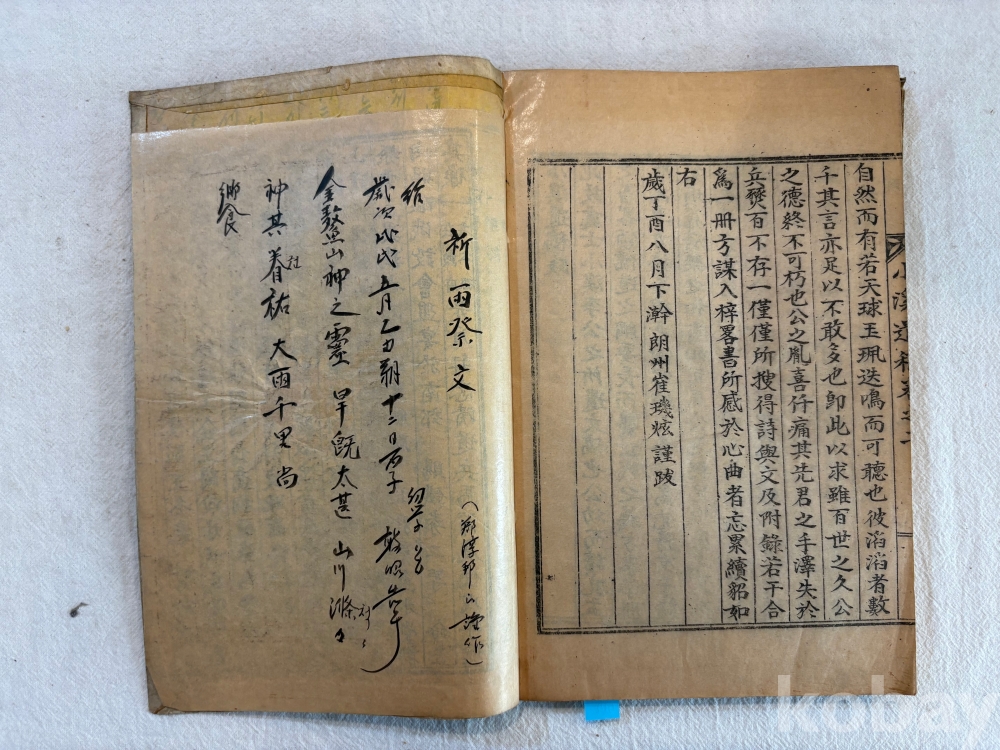 小溪遺稿卷之二
自然而有若天球玉珮迭鳴而可聽也彼滔滔者數
千其言亦足以不敢多也卽此以求雖百世之久公
之德終不可朽也公之胤喜仟痛其先君之手澤失於
兵燹百不存一僅僅所搜得詩與文及附錄若干合
爲一冊方謀入梓畧書所感於心曲者忘累續貂如
右
歲丁酉八月下澣 朗州崔璣炫謹跋
祈雨祭文
維
歲次戊辰五月乙丑朔十二日丙子 幼學 敢昭告于
金鰲山神之靈 旱旣太甚 山川滌々
神其眷祐 大雨千里 尚
饗
kobay